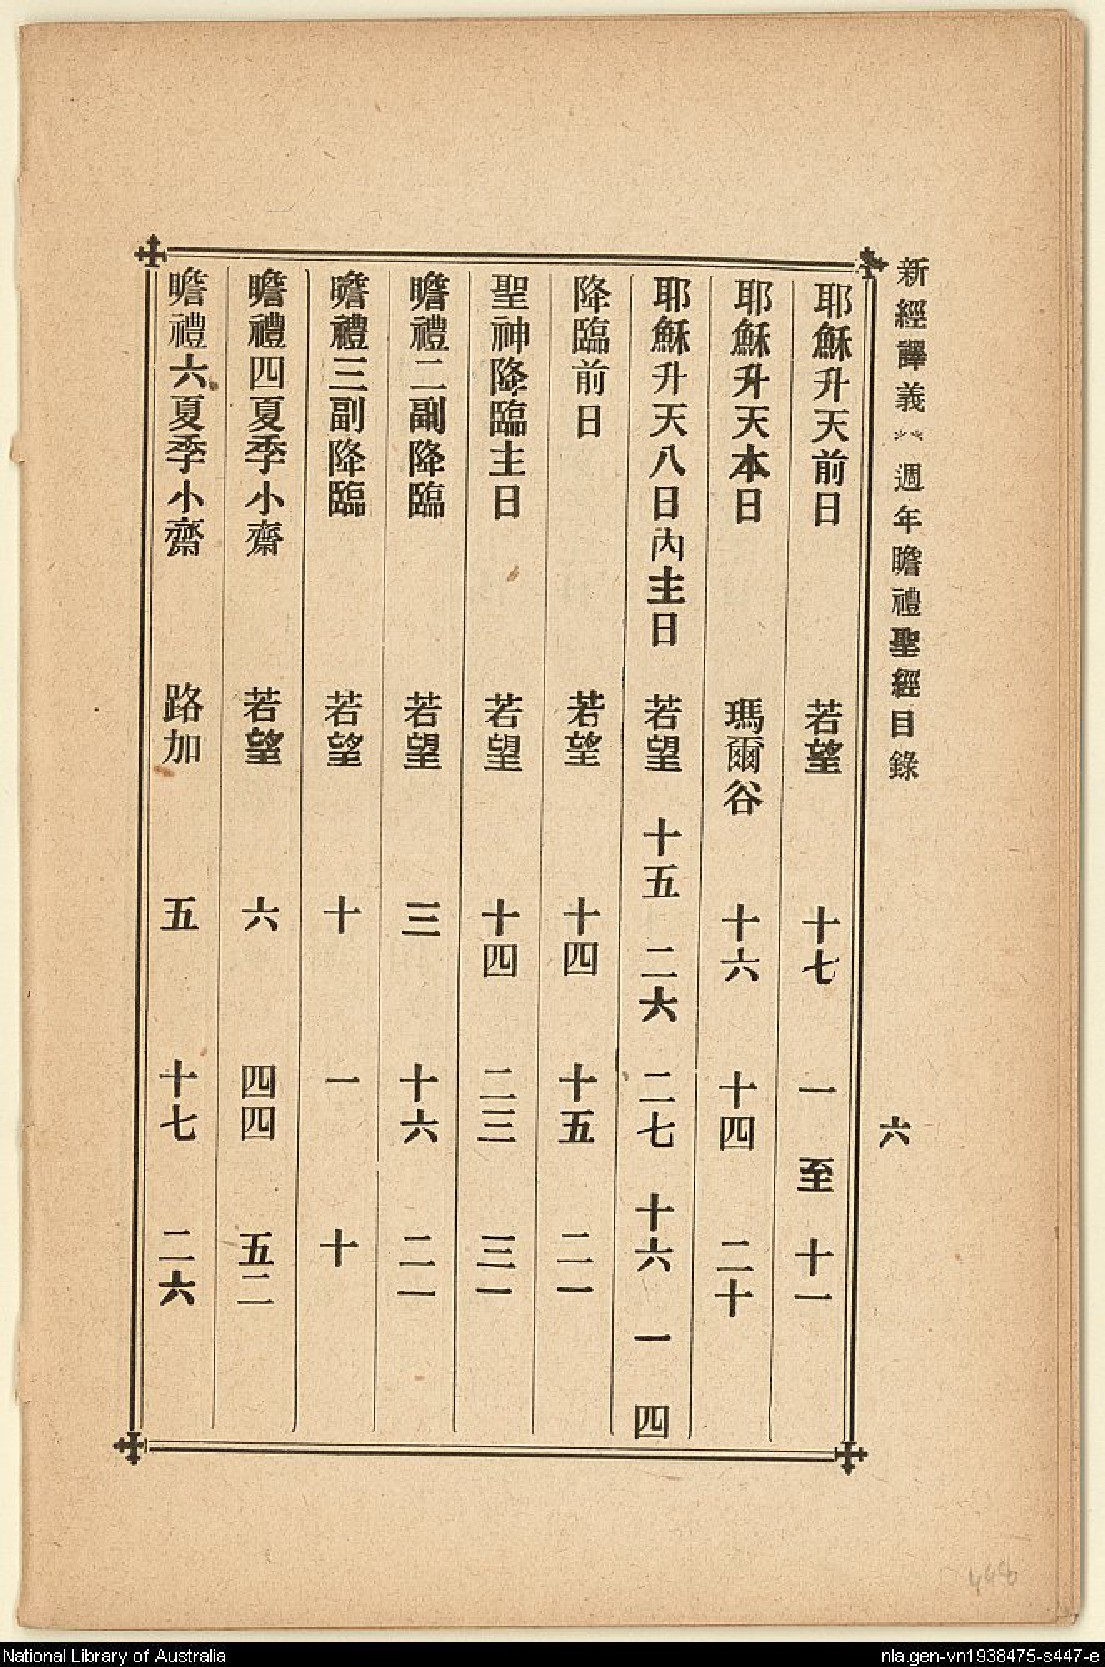 新經譯義 週年瞻禮聖經目錄 六
耶穌升天前日 若望 十七 一 至 十一
耶穌升天本日 瑪爾谷 十六 十四 二十
耶穌升天八日內主日 若望 十五 二六 二七 十六 一 四
降臨前日 若望 十四 十五 二一
聖神降臨主日 若望 十四 二三 三一
瞻禮二副降臨 若望 三 十六 二一
瞻禮三副降臨 若望 十 一 十
瞻禮四夏季小齋 若望 六 四四 五二
瞻禮六夏季小齋 路加 五 十七 二六
448
National Library of Australia
nla.gen-vn1938475-s447-e